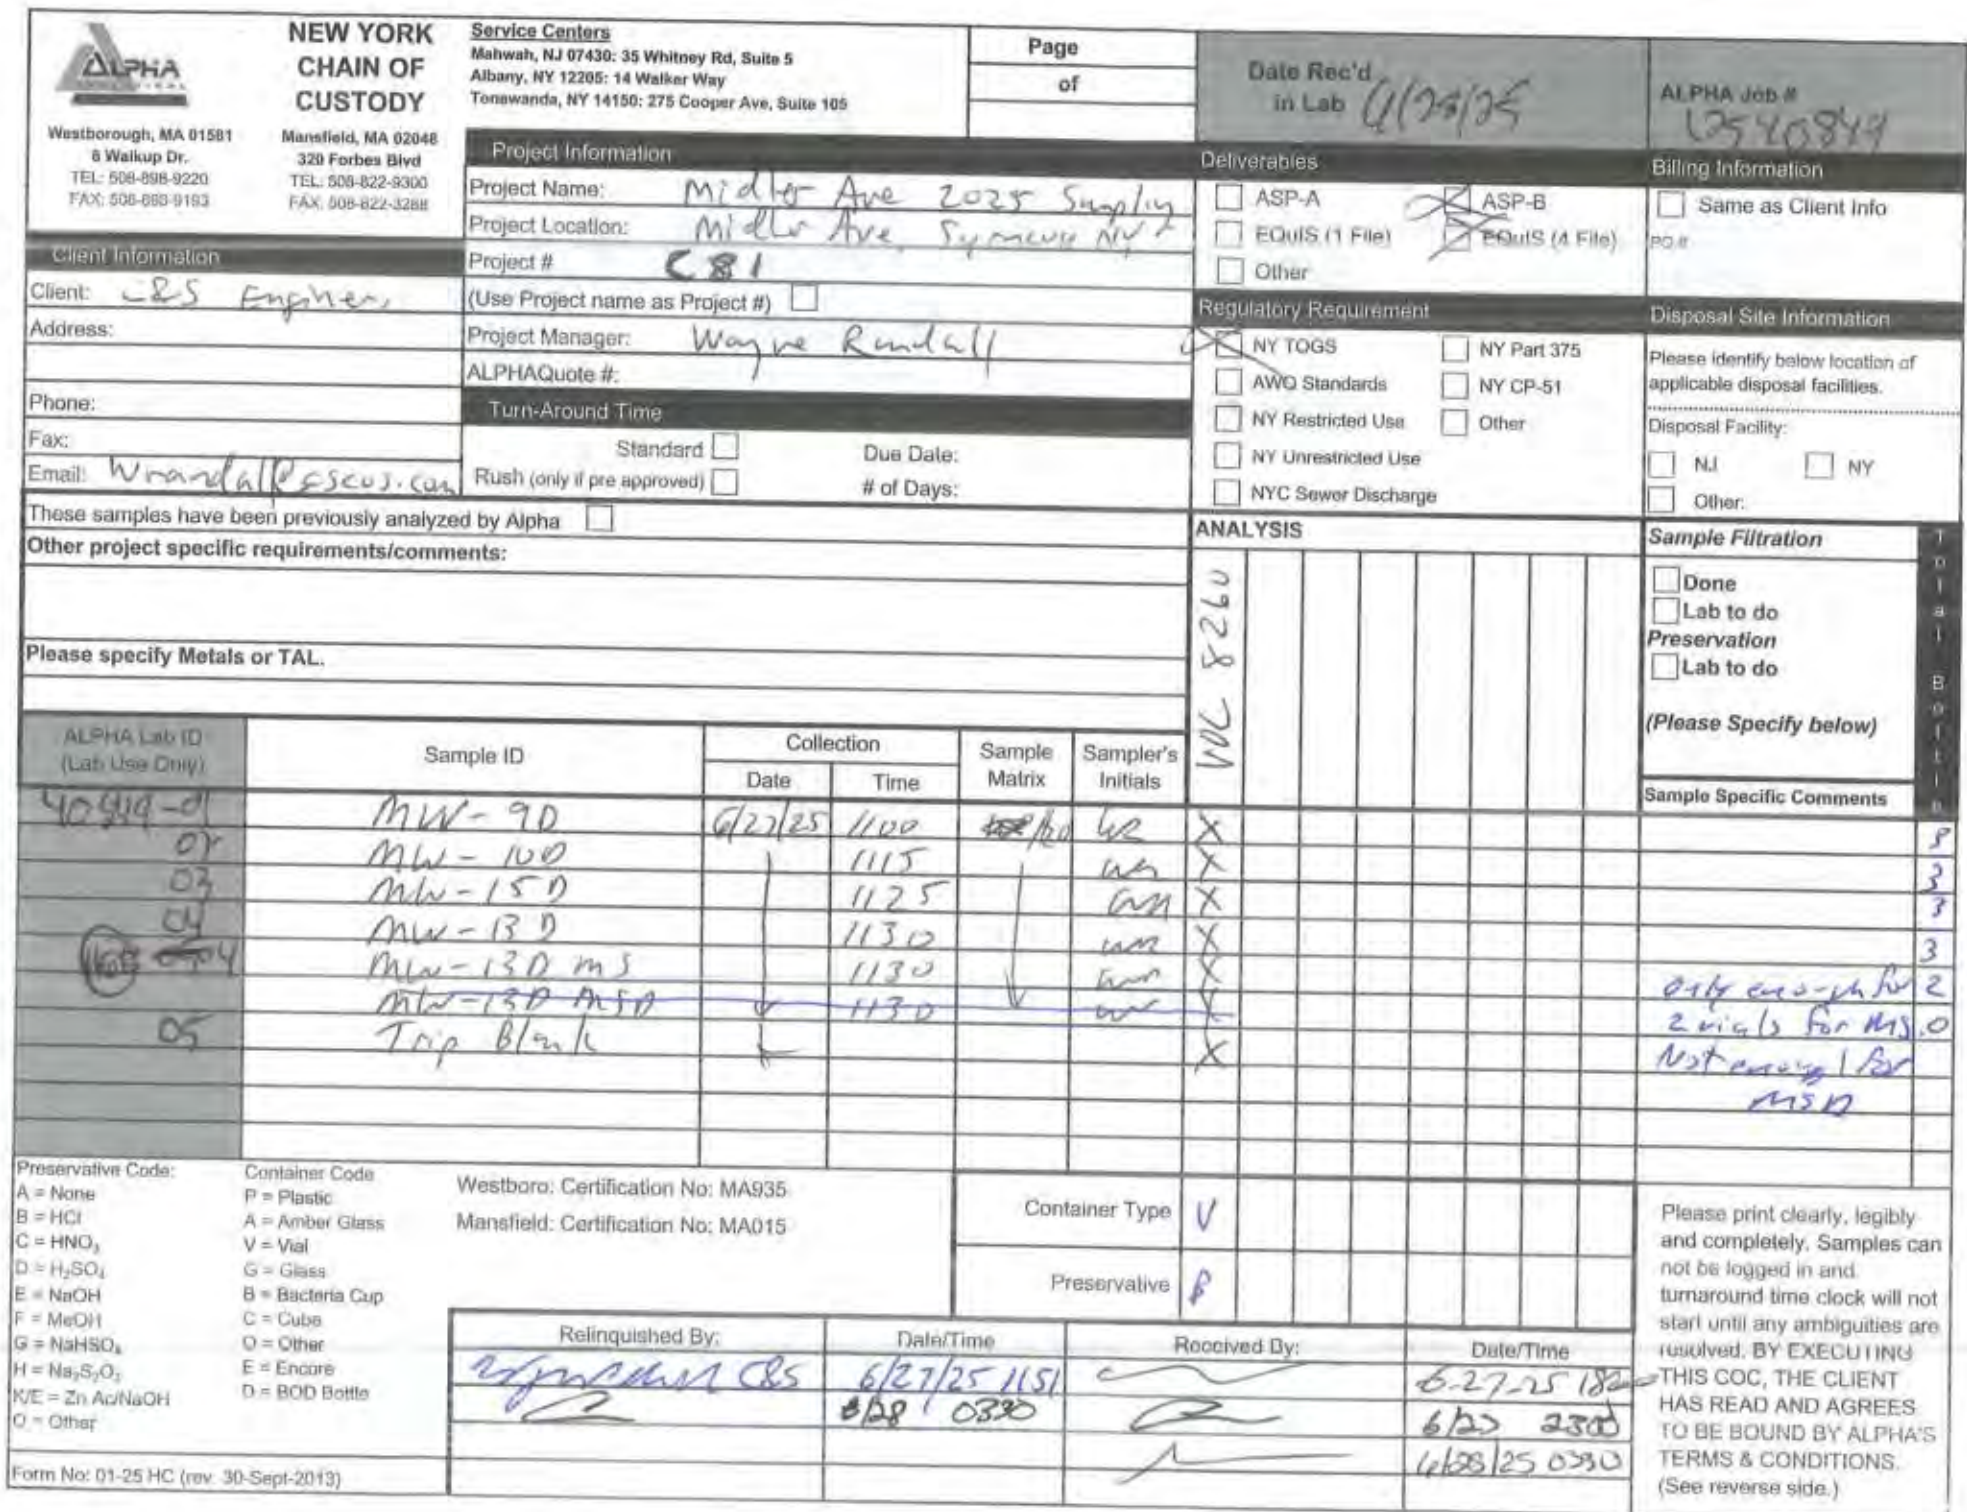 ALPHA
NEW YORK
CHAIN OF
CUSTODY
Westborough, MA 01581
8 Walkup Dr.
TEL: 508-898-9220
FAX: 508-898-9193
Mansfield, MA 02048
320 Forbes Blvd
TEL: 508-822-9300
FAX: 508-822-3288
Service Centers
Mahwah, NJ 07430: 35 Whitney Rd, Suite 5
Albany, NY 12205: 14 Walker Way
Tonawanda, NY 14150: 275 Cooper Ave, Suite 105
Page
of
Date Rec'd
in Lab
6/28/25
ALPHA Job #
L2540849
Project Information
Project Name: Midler Ave 2025 Sampling
Project Location: Midler Ave, Syracuse NY
Project # C81
(Use Project name as Project #)
Project Manager: Wayne Randall
ALPHAQuote #:
Client Information
Client: C&S Engineers
Address:
Phone:
Fax:
Email: Wrandall@cscos.com
Turn-Around Time
Standard Due Date:
Rush (only if pre approved) # of Days:
Deliverables
ASP-A ASP-B
EQuIS (1 File) EQuIS (4 File)
Other
Regulatory Requirement
NY TOGS NY Part 375
AWQ Standards NY CP-51
NY Restricted Use Other
NY Unrestricted Use
NYC Sewer Discharge
Billing Information
Same as Client Info
PO #
Disposal Site Information
Please identify below location of
applicable disposal facilities.
Disposal Facility:
NJ NY
Other:
These samples have been previously analyzed by Alpha
Other project specific requirements/comments:
Please specify Metals or TAL.
ANALYSIS
VOC 8260
Sample Filtration
Done
Lab to do
Preservation
Lab to do
(Please Specify below)
Sample Specific Comments
Total Bottle
ALPHA Lab ID
(Lab Use Only)
Sample ID
Collection
Date Time
Sample
Matrix
Sampler's
Initials
40849-01 MW-9D 6/27/25 1100 WR X
02 MW-10D 1115 WR X 3
03 MW-15D 1125 X 3
04 MW-13D 1130 WR X 3
MW-13D MS 1130 X only enough for 2
MW-13D MSD 1130 X 2 vials for MS. 0
05 Trip Blank X Not enough for
MSD
Preservative Code:
A = None
B = HCl
C = HNO₃
D = H₂SO₄
E = NaOH
F = MeOH
G = NaHSO₄
H = Na₂S₂O₃
K/E = Zn Ac/NaOH
O = Other
Container Code
P = Plastic
A = Amber Glass
V = Vial
G = Glass
B = Bacteria Cup
C = Cube
O = Other
E = Encore
D = BOD Bottle
Westboro: Certification No: MA935
Mansfield: Certification No: MA015
Container Type V
Preservative B
Relinquished By: Date/Time Received By: Date/Time
C&S 6/27/25 1151 6-27-25
6/28 0330 6/27 2300
6/28/25 0330
Please print clearly, legibly
and completely. Samples can
not be logged in and
turnaround time clock will not
start until any ambiguities are
resolved. BY EXECUTING
THIS COC, THE CLIENT
HAS READ AND AGREES
TO BE BOUND BY ALPHA'S
TERMS & CONDITIONS.
(See reverse side.)
Form No: 01-25 HC (rev. 30-Sept-2013)